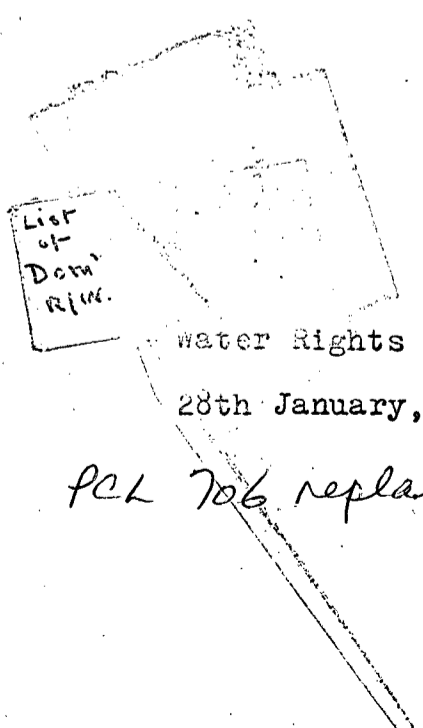 List
of
Dom'
R/W.
Water Rights
28th January,
PCL 706 repla